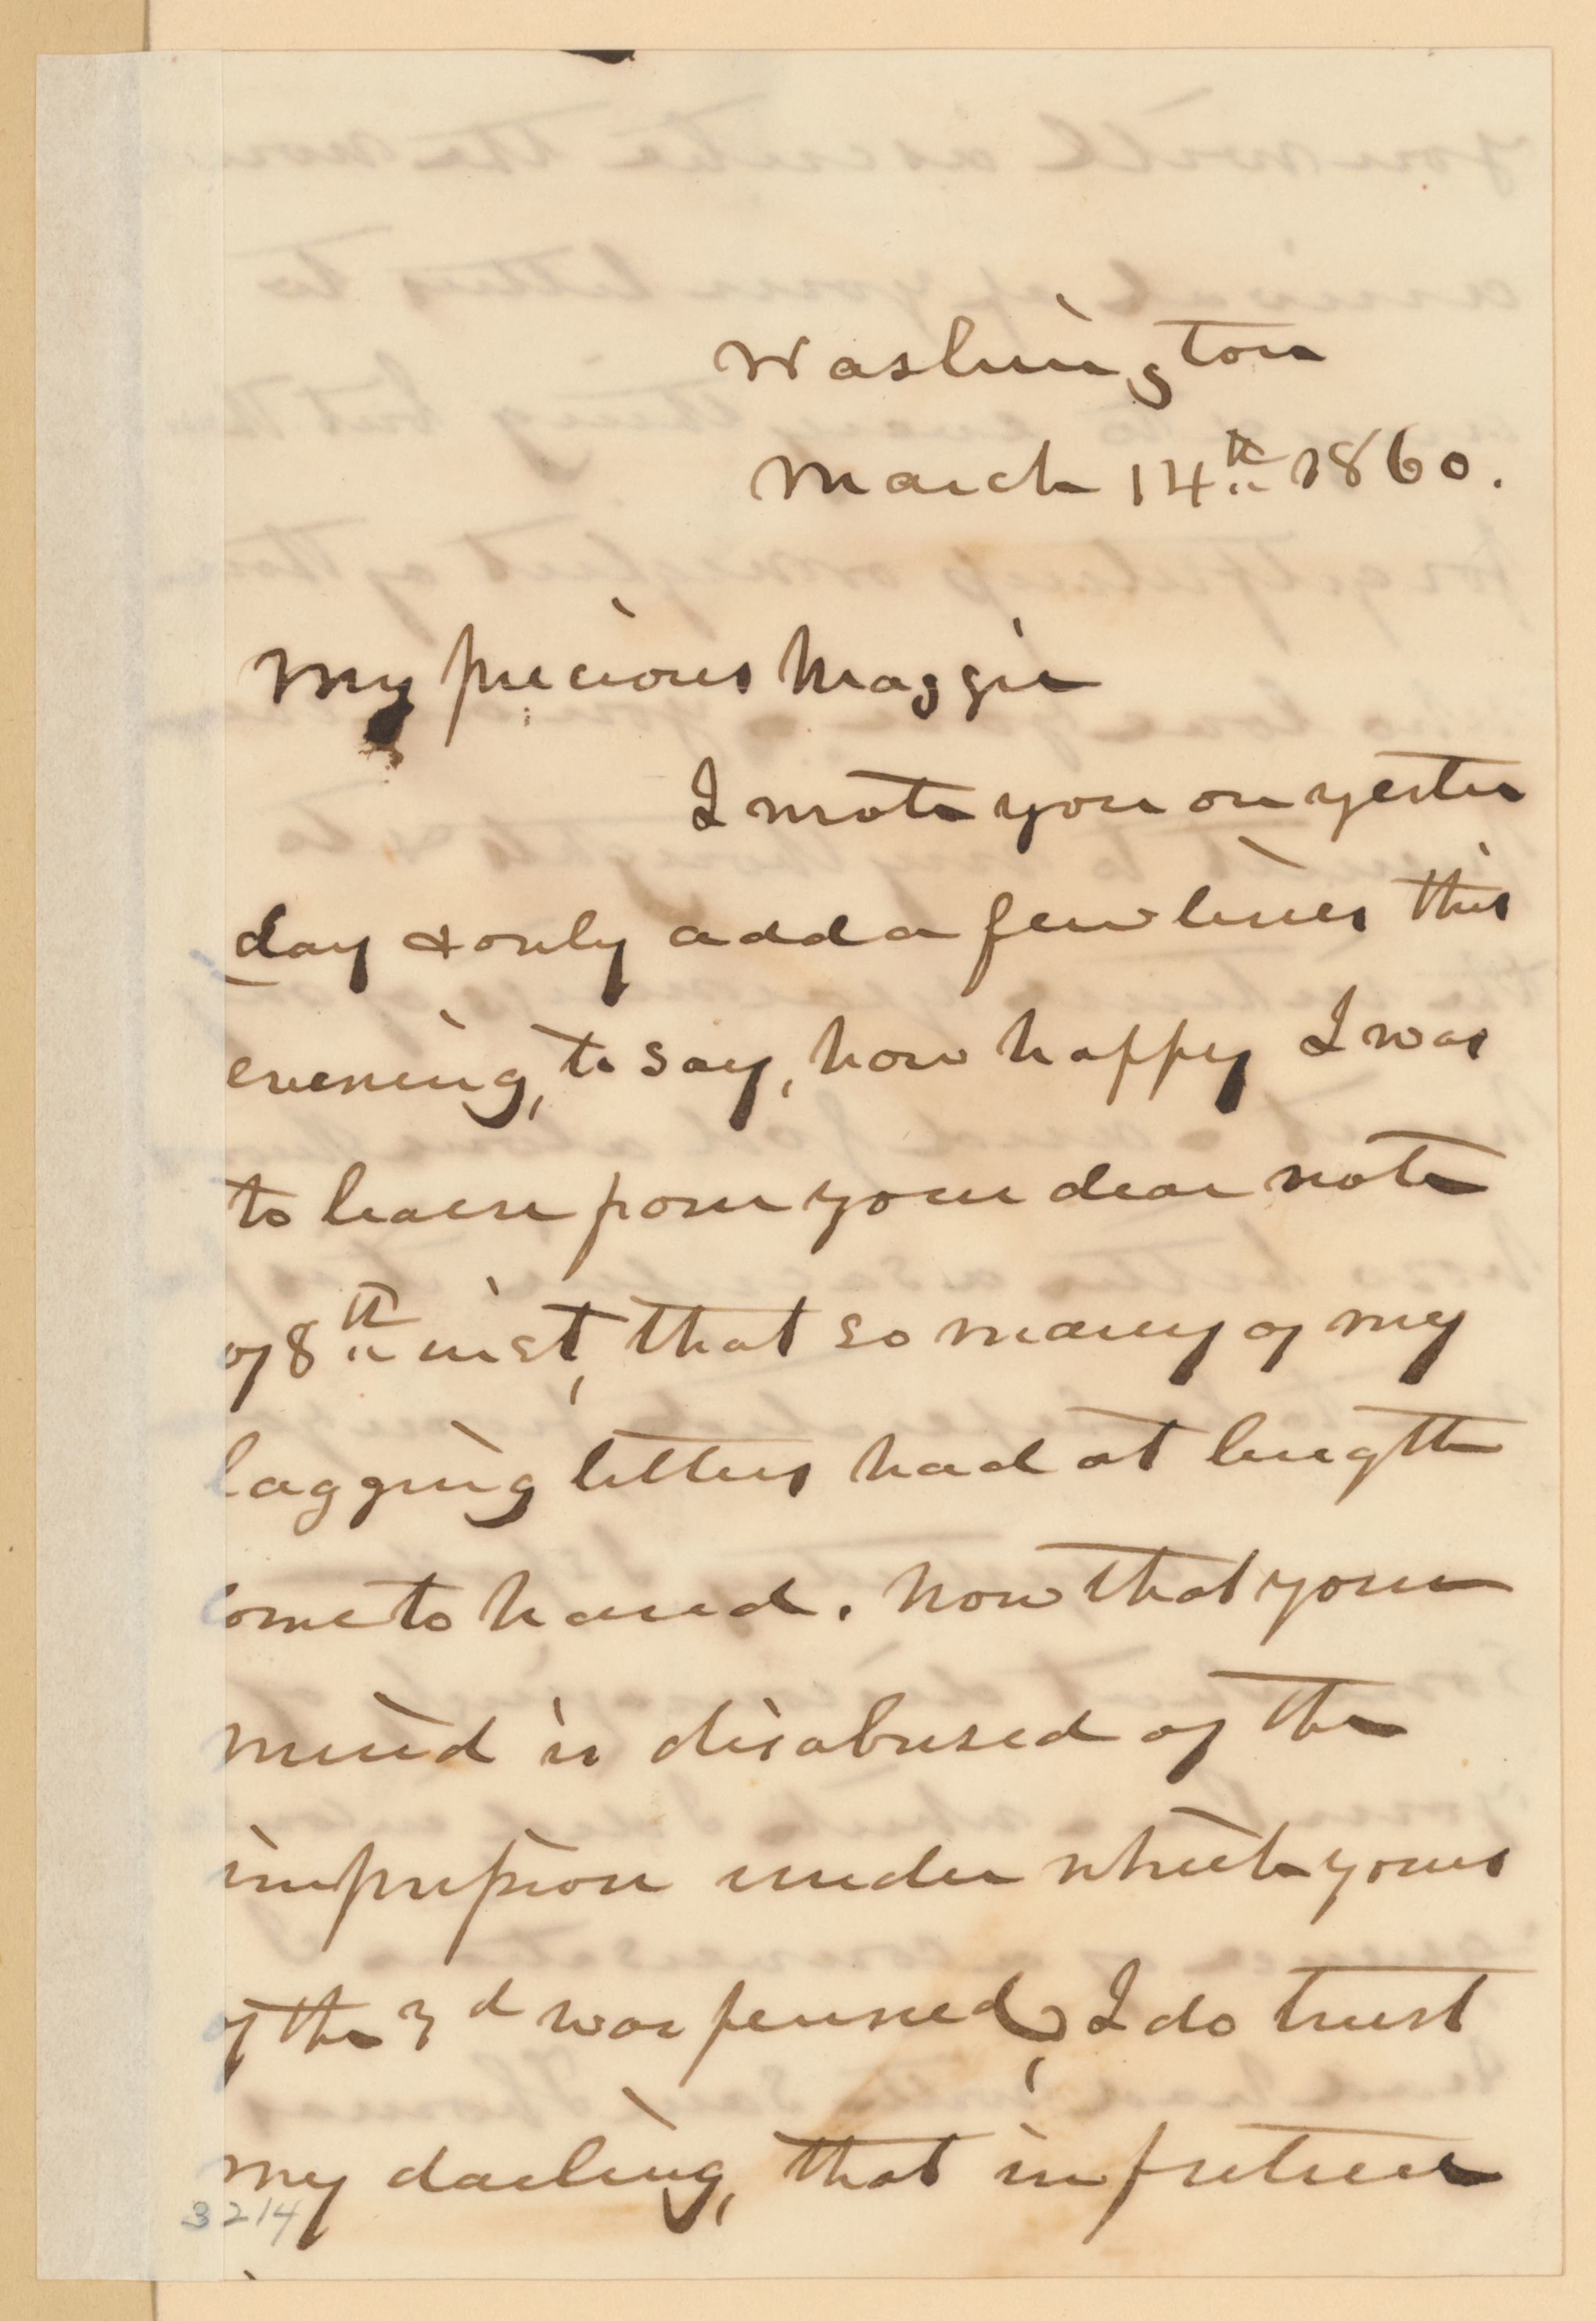 Washington
March 14th 1860.
My precious Maggie
I wrote you on yester
day & only add a few lines this
evening, to say, how happy I was
to learn from your dear note
of 8th inst, that so many of my
lagging letters had at length
come to hand. Now that your
mind is disabused of the
impression under which yours
of the 3d was penned, I do trust
my darling, that in future
3214